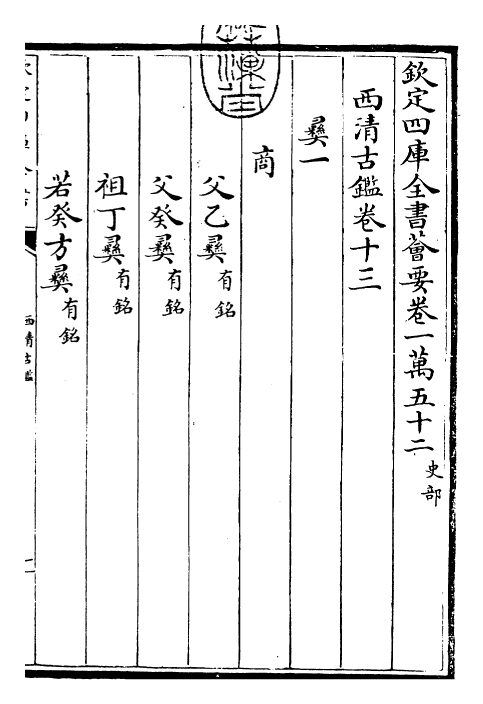 欽定四庫全書薈要卷一萬五十二 史部
西清古鑑卷十三
彝一
商
父乙彝 有銘
父癸彝 有銘
祖丁彝 有銘
若癸方彝 有銘
西清古鑑